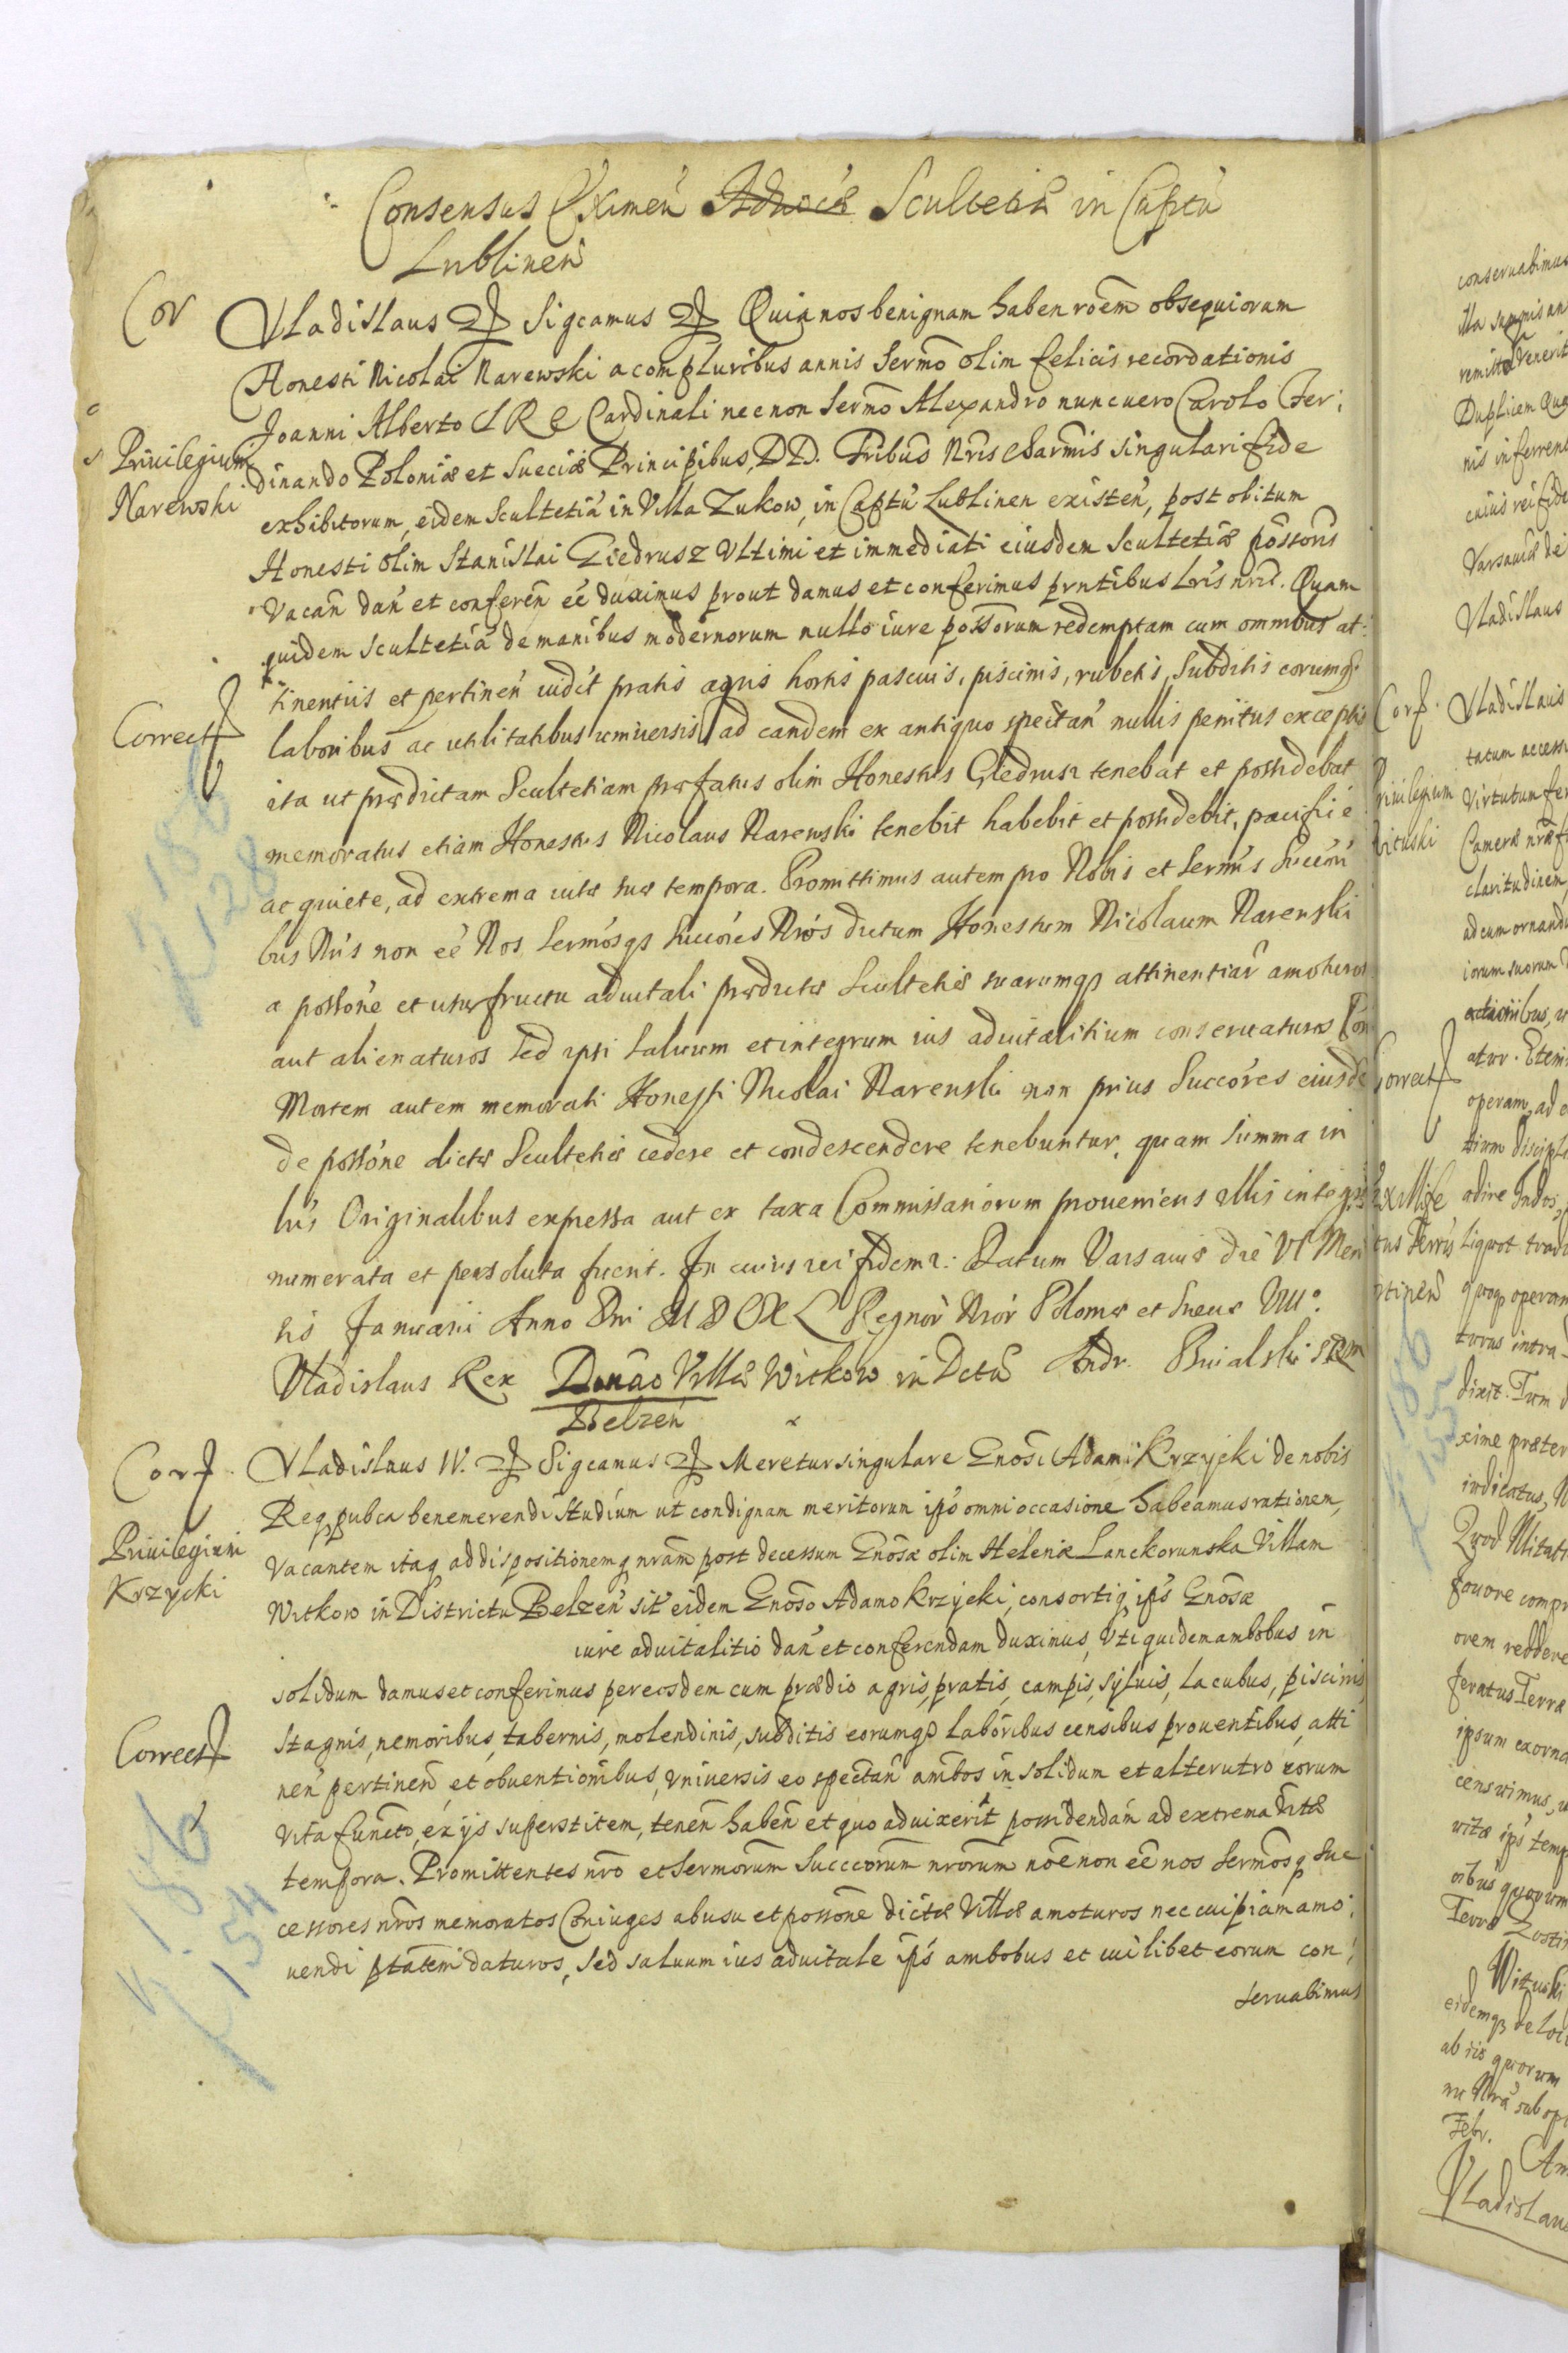 Consensus Eximeń Aduociæ Scultetiæ in Captũ
Lublineń
Cor
Vladislaus Sigcamus Quia nos benignam haben roẽm obsequiorum
Honesti Nicolai Narewski a compluribus annis Sermõ olim felicis recordationis
Joanni Alberto S R E Cardinali nec non Sermõ Alexandro nunc vero Carolo Fer:
Priuilegium
Narewski
dinando Poloniæ et Sueciæ Principibus, DD. Fribus Nr̃is Charm̃is singulari fide
exhibitorum, eidem Scultetiã in Villa Zukow, in Captũ Lublinen existeń, post obitum
Honesti olim Stanislai Giedrusz Vltimi et immediati eiusdem Scultetiæ possoris
Vacan̄ dań et conferen̄ eẽ duximus prout damus et conferimus prntibus Lris nris. Quam
quidem Scultetiã de manibus modernorum nullo iure possorum redemptam cum omnibus at:
tinentiis et pertineń uidĩt pratis agris hortis pascuis, piscinis, rubetis, Subditis eorumq3
Correct
laboribus ac utilitatibus uniuersis ad eandem ex antiquo spectań nullis penitus exceptis
ita ut prædictam Scultetiam præfatus olim Honestus Giedrusz tenebat et possidebat
memoratus etiam Honestus Nicolaus Narewski tenebit habebit et possidebit, pacificè
ac quiete, ad extrema uitæ suæ tempora. Promittimus autem pro Nobis et Sermis Succori
bus Nris non eẽ Nos Sermosq3 Succores Nros dictum Honestum Nicolaum Narewski
a possone et usufructu aduitali prædictæ Scultetiæ suarumq3 attinentiar amoturos
aut alienaturos sed ipsi saluum et integrum ius aduitalitium conseruaturos
Mortem autem memorati Honesti Nicolai Narewski non prius Succores eiusde
de possone dictæ Scultetiæ cedere et condescendere tenebuntur, quam summa in
lris Originalibus expressa aut ex taxa Commissariorum proueniens illis integre
numerata et persoluta fuerit. In cuius rei fidem: Datum Varsauiæ die VI Men
sis Januarii Anno Dni MDCXL Regnor Nror Poloniæ et Sueciæ VIII°.
Vladislaus Rex Donaõ Villæ Witkow in Dctũ
Belzeń
Cor
Vladislaus IV. Sigcamus Meretur singulare Gnosi Adami Krzycki de nobis
Req3 pubca benemerendi studium ut condignam meritorum ips̃ omni occasione habeamus rationem,
Priuilegium
Krzycki
Vacantem itaq addispositionemq nrãm post decessum Gnosæ olim Helenæ Lanckorunska Villam
Witkow in Districtu Belzeń sit eidem Gnoso Adamo Krzycki, consortiq ips̃ Gnosæ
iure aduitalitio dań et conferendam duximus, Vti quidem ambobus in
solidum damus et conferimus per eosdem cum prædio agris, pratis, campis, syluis, lacubus, piscinis,
Correct
stagnis, nemoribus, tabernis, molendinis, subditis eorumq3 laboribus censibus prouentibus, atti
neń pertineń, et obuentionibus, vniuersis eo spectań ambos in solidum et alterutro eorum
vita functo, ex ijs superstitem, tenen̄ haben̄ et quo aduixerit possidendań ad extrema vitæ
tempora. Promittentes nrõ et Sermorum Succcorum nrorum noẽ non eẽ nos Sermosq Suc
cessores nros memoratos Coniuges ab usu et possone dictæ Villæ amoturos nec cuipiam amo:
uendi ptatem daturos, sed saluum ius aduitale ips̃ ambobus et cuilibet eorum con:
seruabimus
K 186
K 154
conseruabimus
Duplicem
nis inferrend
cuius rei fide
Varsauiæ de
Vladislaus
Cor
Vladislaus
Priuilegium
Virtutum
Wituski
Cameræ
claritudinem
ad eum ornand
iorum suorum
Correct
operam, ad
adire Indos
liquot
quoq3 operam
turus intra
dixit. Tum
xime præter
indicatus,
Quod
fouore
orem reddere
feratus Terræ
ipsum exorna
censuimus,
vitæ ips̃ temp
Terræ
Wituski
eidemq3 de
ab iis quorum
Febr.
Vladislaus